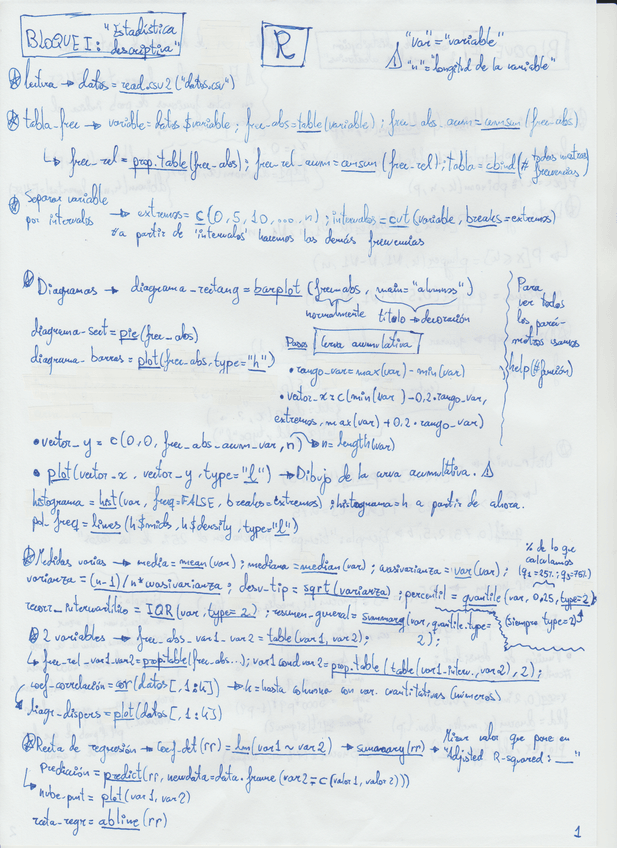 BLOQUE I: "Estadística descriptiva"
R
⚠ "var" = "variable"
"n" = longitud de la variable"
* lectura → datos = read.csv2 ("datos.csv")
* tabla_frec → variable = datos $ variable ; frec_abs = table(variable) ; frec_abs_acum = cumsum (frec_abs)
↳ frec_rel = prop.table(frec_abs) ; frec_rel_acum = cumsum (frec_rel) ; tabla = cbind(# todas nuestras frecuencias)
* Separar variable por intervalos → extremos = c(0, 5, 10, ..., n) ; intervalos = cut (variable, breaks = extremos)
# a partir de 'intervalos' hacemos las demás frecuencias
* Diagramas → diagrama_rectang = barplot (frec_abs, main = "alumnos")
normalmente título → decoración
Para ver todos los parámetros usamos help(#función)
diagrama_sect = pie(frec_abs)
diagrama_barras = plot(frec_abs, type = "h")
Pasos Curva acumulativa
• rango_var = max(var) - min(var)
• vector_x = c(min(var) - 0,2 · rango_var, extremos, max(var) + 0,2 · rango_var)
• vector_y = c(0, 0, frec_abs_acum_var, n) → n = length(var)
• plot(vector_x, vector_y, type = "l") → Dibujo de la curva acumulativa. ⚠
histograma = hist(var, freq = FALSE, breaks = extremos) ; histograma = h a partir de ahora.
pol_freq = lines (h$mids, h$density, type = "l")
* Medidas varias → media = mean(var) ; mediana = median(var) ; cuasivarianza = var(var) ;
% de lo que calculamos (q1 = 25% ; q3 = 75%)
varianza = (n-1)/n * cuasivarianza ; desv_tip = sqrt(varianza) ; percentil = quantile (var, 0,25, type = 2)
(Siempre type = 2)
recorr_intercuartílico = IQR(var, type = 2) ; resumen_general = summary(var, quantile.type = 2) ;
* 2 variables → frec_abs_var1_var2 = table(var1, var2) ;
↳ frec_rel_var1_var2 = prop.table(frec_abs...) ; var1 cond var2 = prop.table (table(var1_interv., var2), 2) ;
coef_correlación = cor(datos[, 1:k]) → k = hasta columna con var. cuantitativas (números)
diagr_dispers = plot(datos[, 1:k])
* Recta de regresión → coef_det (rr) = lm(var1 ~ var2) → summary(rr) → Mirar valor que pone en "Adjusted R-squared: __"
↳ predicción = predict(rr, newdata = data.frame (var2 = c(valor1, valor2)))
nube_punt = plot(var1, var2)
recta_regr = abline(rr)
1